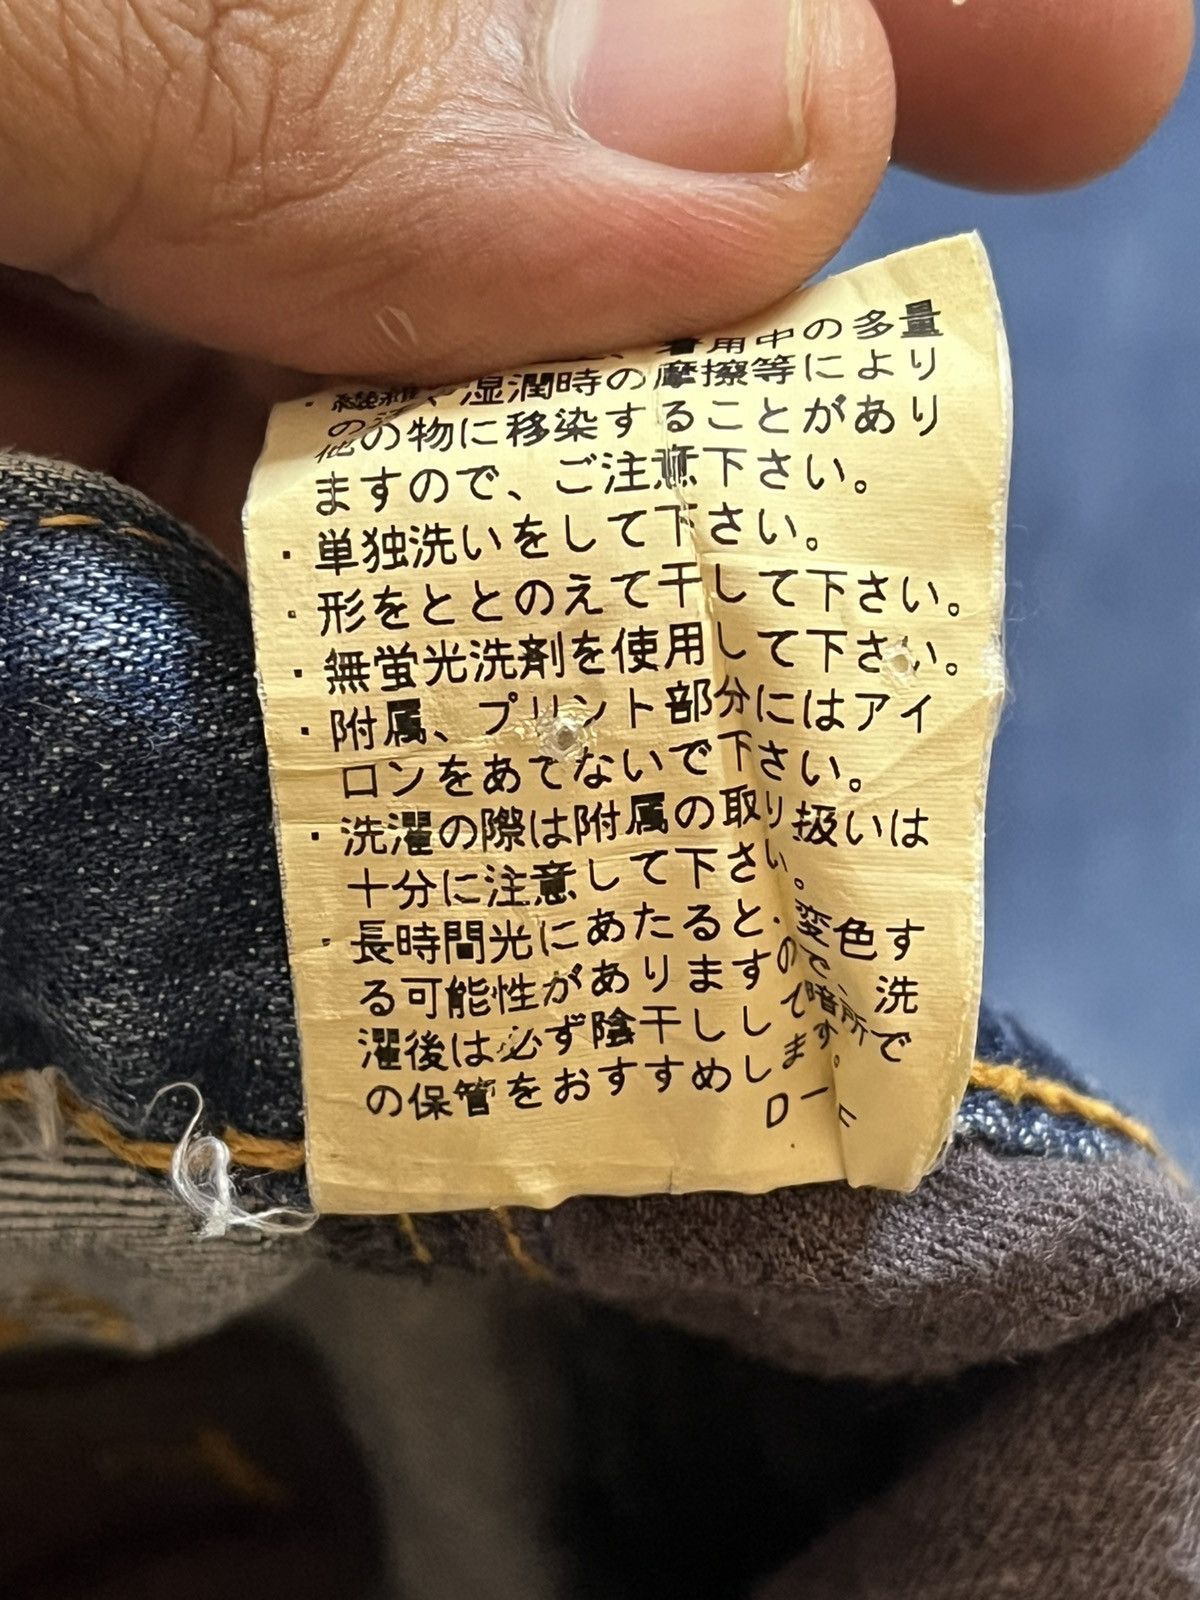 着用中の多量
の湿潤時の摩擦等により
他の物に移染することがあり
ますので、ご注意下さい。
・単独洗いをして下さい。
・形をととのえて干して下さい。
・無蛍光洗剤を使用して下さい。
・附属、プリント部分にはアイ
ロンをあてないで下さい。
・洗濯の際は附属の取り扱いは
十分に注意して下さい。
・長時間光にあたると、変色す
る可能性がありますので、洗
濯後は必ず陰干しして暗所で
の保管をおすすめします。
D-